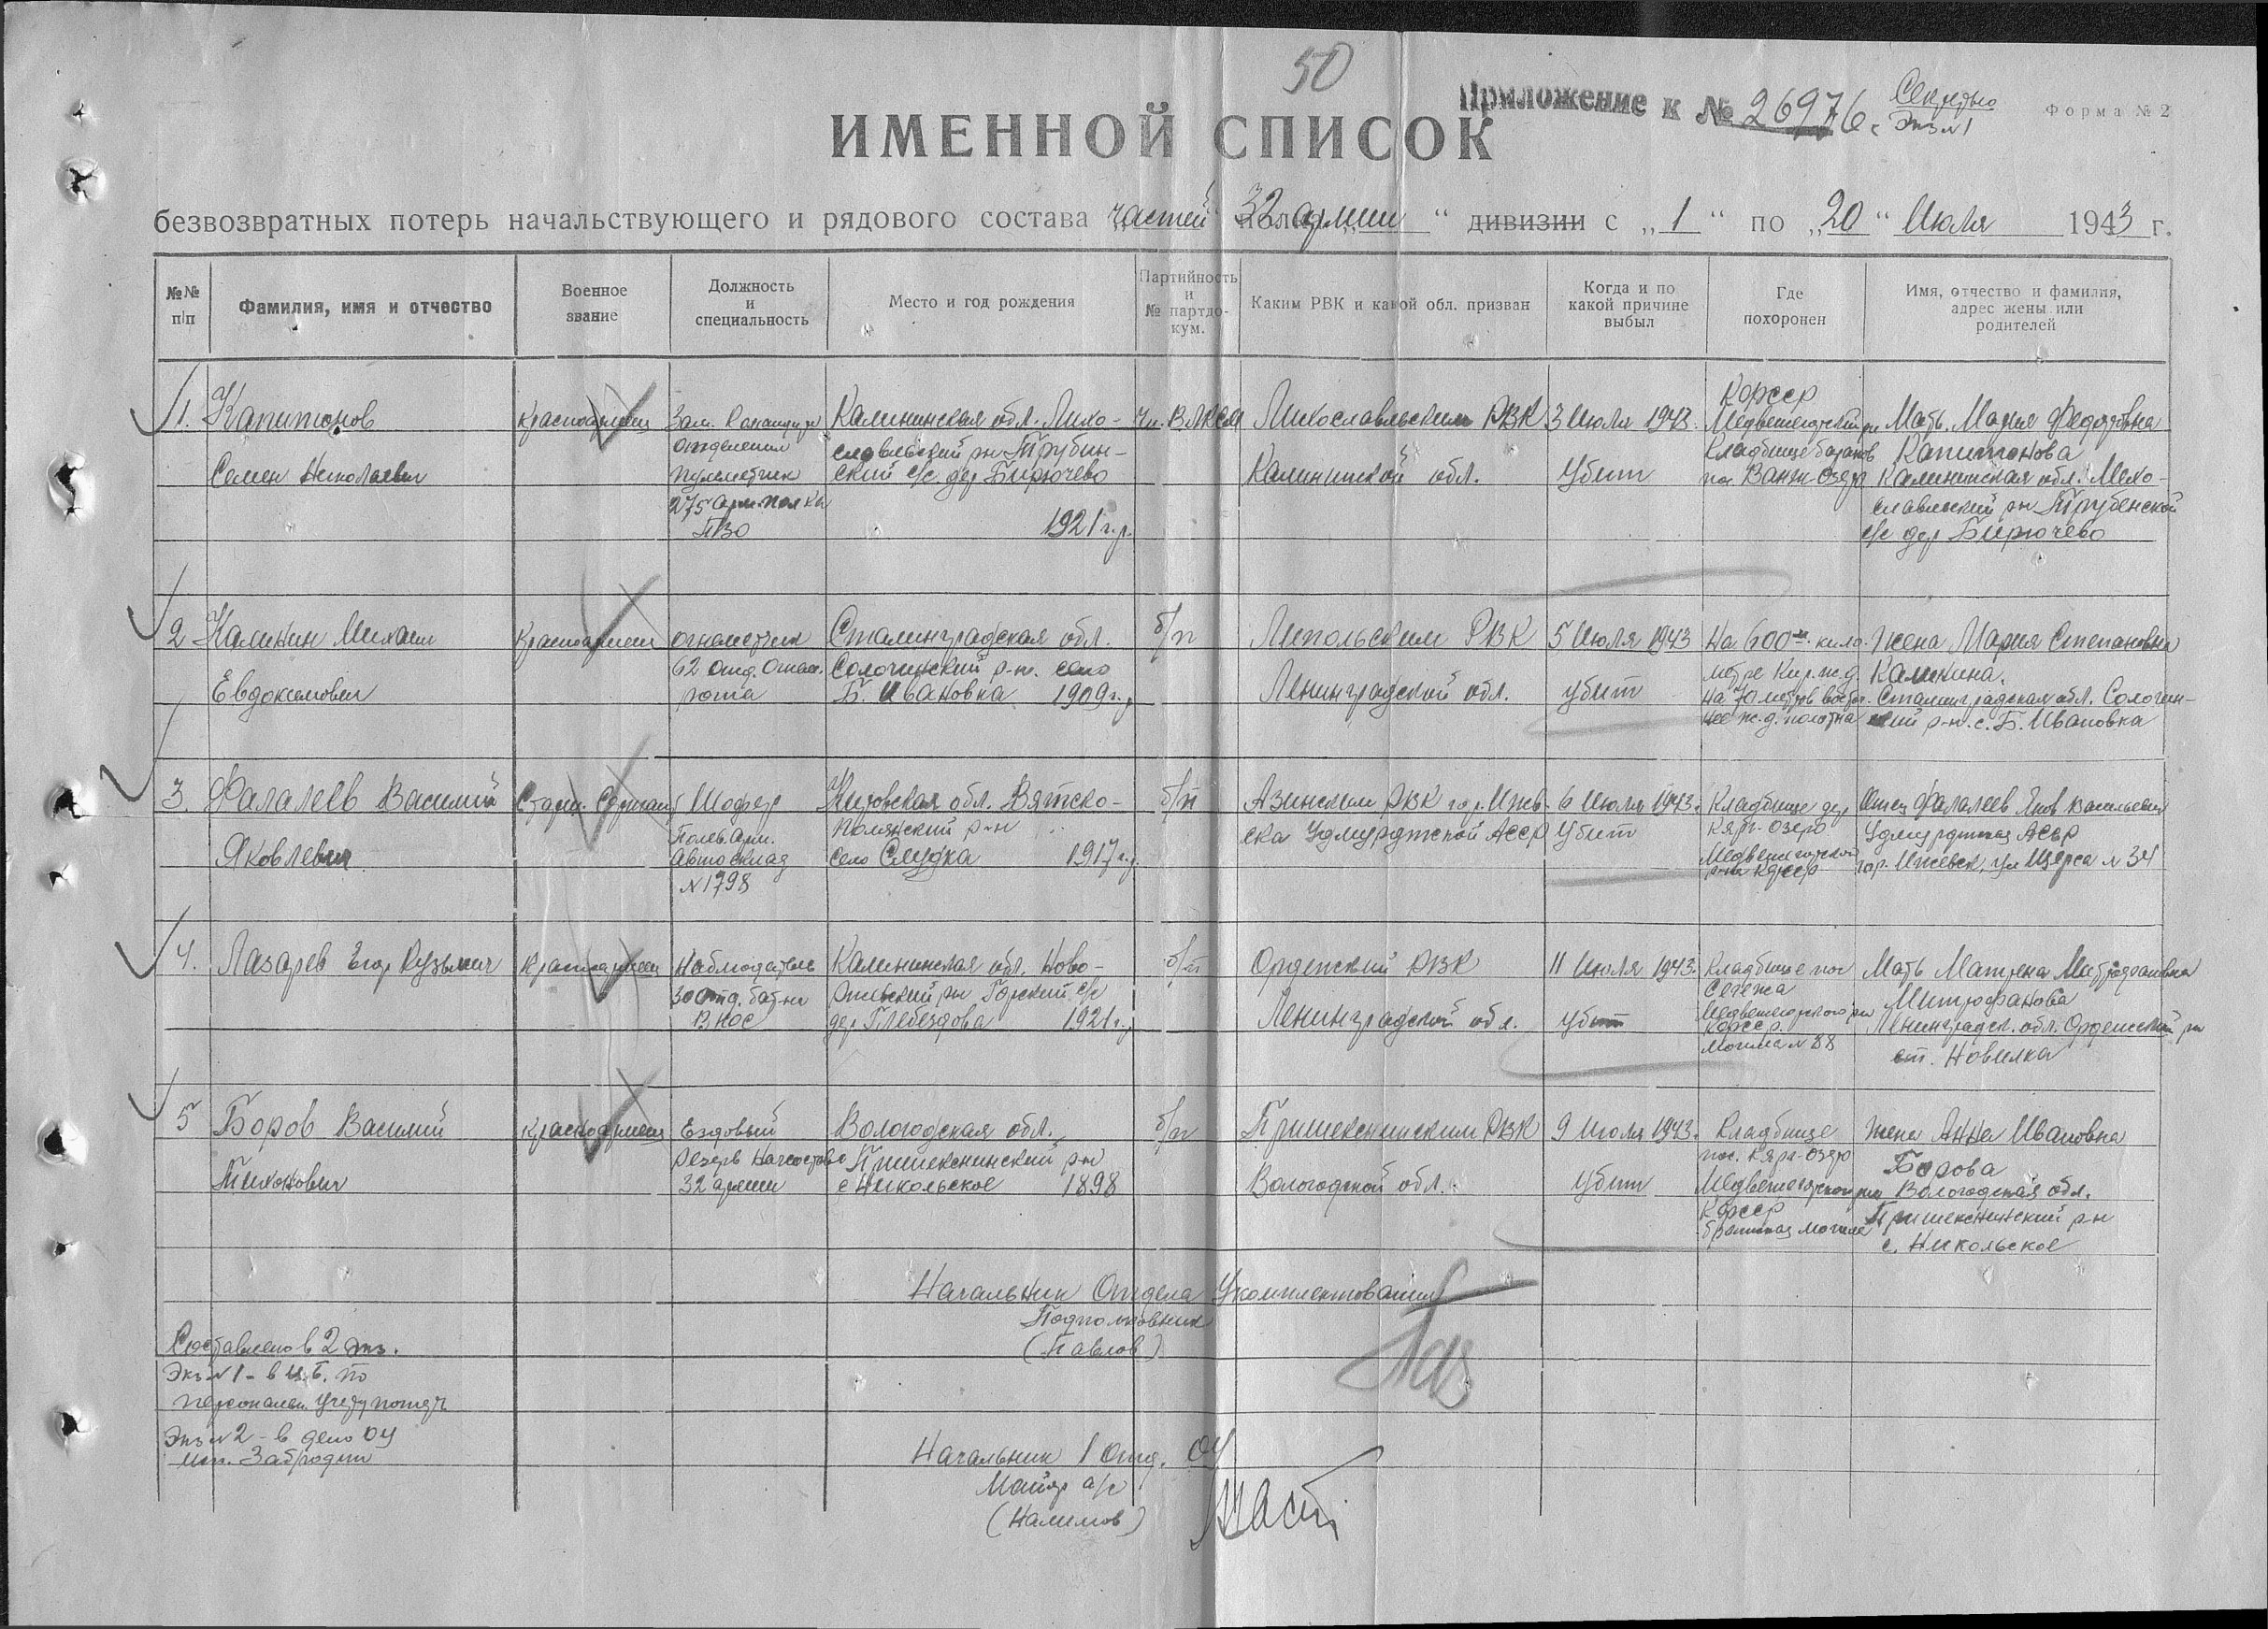 50
Приложение к № 26976с
Секретно
Экз №1
Форма № 2
ИМЕННОЙ СПИСОК
безвозвратных потерь начальствующего и рядового состава частей 32 армии " дивизии с „ 1 " по „ 20 " Июля 1943 г.
№№ п/п
Фамилия, имя и отчество
Военное звание
Должность и специальность
Место и год рождения
Партийность и № партдокум.
Каким РВК и какой обл. призван
Когда и по какой причине выбыл
Где похоронен
Имя, отчество и фамилия, адрес жены или родителей
1. Капитонов
Семен Николаевич
Красноармеец
Зам. Командира
отделения
пулеметчик
275 Арт. полка
ПВО
Калининская обл. Лихо-
славльский рн Трубин-
ский с/с дер Бирючево
1921 г.р.
Чл. ВЛКСМ
Лихославльским РВК
Калининской обл.
3 Июля 1943.
Убит
КФССР
Медвежегорский рн
Кладбище
Мать. Мария Федоровна
Капитонова
Калининская обл. Лихо-
славльский рн Трубенской
с/с дер Бирючево
2 Калинин Михаил
Евдокимович
Красноармеец
огнеметчик
62 отд. огнем.
рота
Сталинградская обл.
Солочинский р-н. село
Б. Ивановка 1909 г.р
б/п
РВК
Ленинградской обл.
5 Июля 1943
убит
На 600м. кило-
метре Кир. ж.д.
На 70 метров восточ-
нее ж.д. полотна
Жена Мария Степановна
Калинина.
Сталинградская обл. Солочин-
ский р-н. с. Б. Ивановка
3. Фалалеев Василий
Яковлевич
Старш. Сержант
Шофер
Полев. Арм.
Автосклад
№1798
Кировская обл. Вятско-
полянский р-н
село Слудка 1917 г.р
б/п
Азинским РВК гор. Ижев-
ска Удмуртской АССР
6 Июля 1943.
Убит
Кладбище дер
Кярг-озеро
Медвежегорской
р-на КФССР
Отец Фалалеев Яков Васильевич
Удмуртская АССР
гор. Ижевск, ул Щорса № 34
4. Лазарев Егор Кузьмич
Красноармеец
Наблюдатель
30 отд. бат-на
ВНОС
Калининская обл. Ново-
ржевский рн Горский с/с
дер 1921 г.р
б/п
Оредежский РВК
Ленинградской обл.
11 Июля 1943.
убит
Кладбище пос
Сегежа
Медвежегорского рн
КФССР.
Могила № 88
Мать Матрена Митрофановна
Митрофанова
Ленинградск. обл. Оредежский рн
ст. Новинка
5 Боров Василий
Тихонович
Красноармеец
Ездовый
резерв Начсостава
32 армии
Вологодская обл.
Пришекснинский р-н
с Никольское 1898
б/п
Пришекснинским РВК
Вологодской обл.
9 Июля 1943.
убит
Кладбище
пос. Кярг-озеро
Медвежегорской рн
КФССР
братская могила
Жена Анна Ивановна
Борова
Вологодская обл.
Пришекснинский р-н
с. Никольское
Начальник Отдела Укомплектования
Подполковник
(Павлов)
Составлено в 2 экз.
Экз №1 - в Ц.Б. по
персональн. учету потерь
Экз №2 - в дело ОУ
исп. Забродин
Начальник 1 Отд. ОУ
Майор а/с
(Налимов)